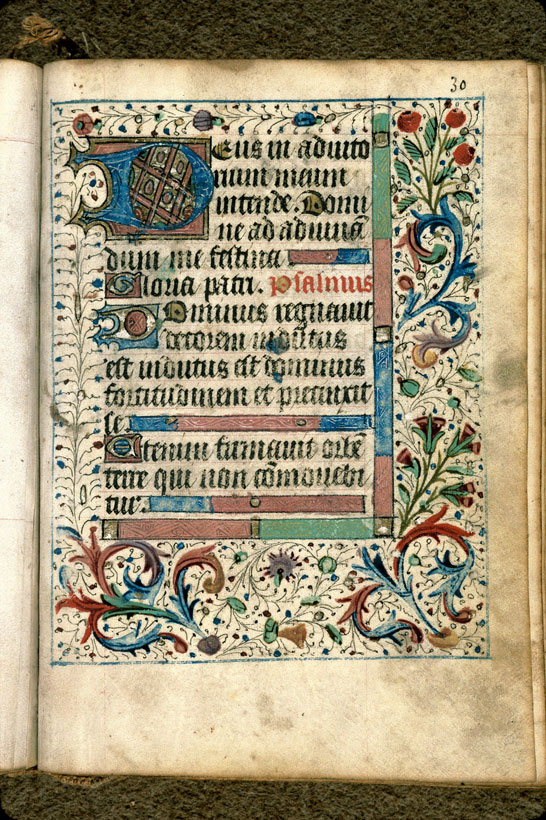 30
Deus in adiuto
rium meum
intende. Domi
ne ad adiuuā
dum me festina
Gloria patri. psalmus
Dominus regnauit
decorem indutus
est indutus est dominus
fortitudinem et precinxit
se.
Etenim firmauit orbē
terre qui non cōmouebi
tur.